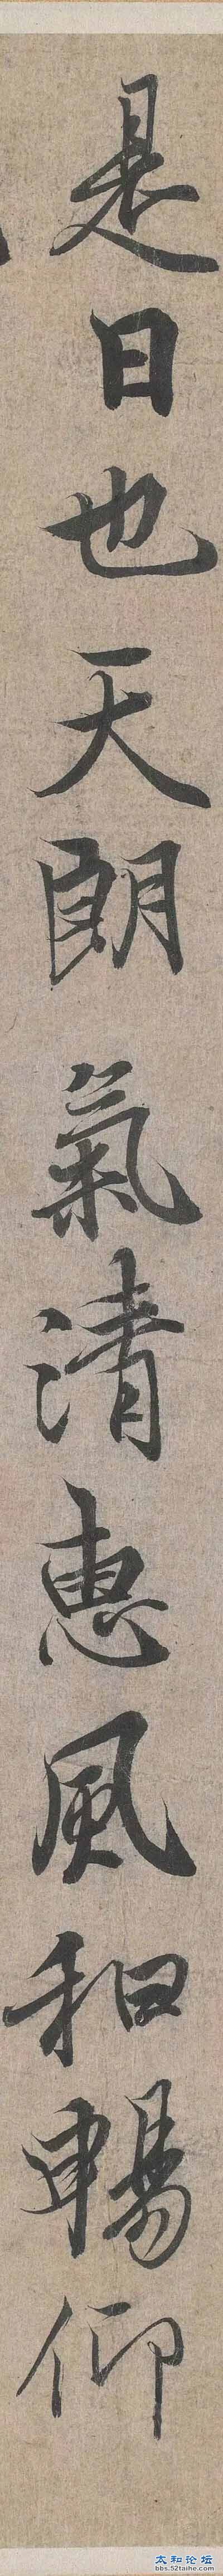 是日也天朗氣清惠風和暢仰
太和论坛
bbs.52taihe.com